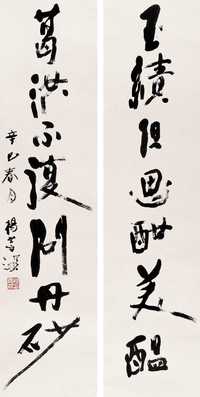 王績但思酣美醞
葛洪不復問丹砂
辛巳春月
楊善深